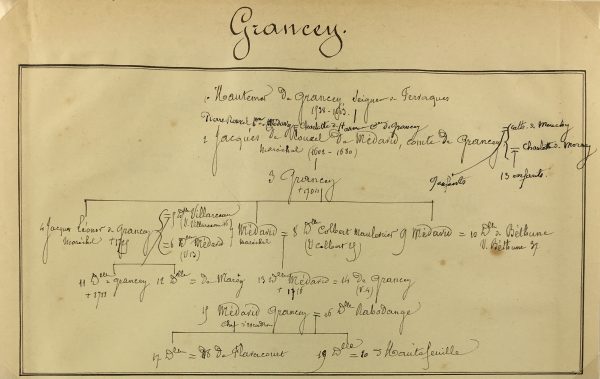 Grancey.
1 Hautemer de Grancey Seigneur de Fervaques
1538 - 1613
Pierre Rouxel Bon de Médavid = Charlotte de Hautemer Ctesse de Grancey
2 Jacques de Rouxel de Médavid, comte de Grancey = Cath. de Mouchy
Maréchal (1602 - 1680) = Charlotte de Mornay
9 enfants 13 enfants.
3 Grancey
+ 1704
4 Jacques Léonor de Grancey = 5 Dlle Villarceau Médavid = 8 Dlle Colbert Maulevrier 9 Médavid = 10 Dlle de Béthune
Maréchal + 1725 (V. Villarceau) maréchal (V. Colbert) V. Béthune 37
= 6 Dlle Médavid
(V 13)
11 Dlle de Grancey 12 Dlle = de Marcy 13 Dlle Médavid = 14 de Grancey
+ 1711 + 1716 (V. 4)
15 Médavid Grancey = 16 Dlle Rabodange
Chef d'escadron
17 Dlle = 18 de Flavacourt 19 Dlle = 20 d'Hautefeuille